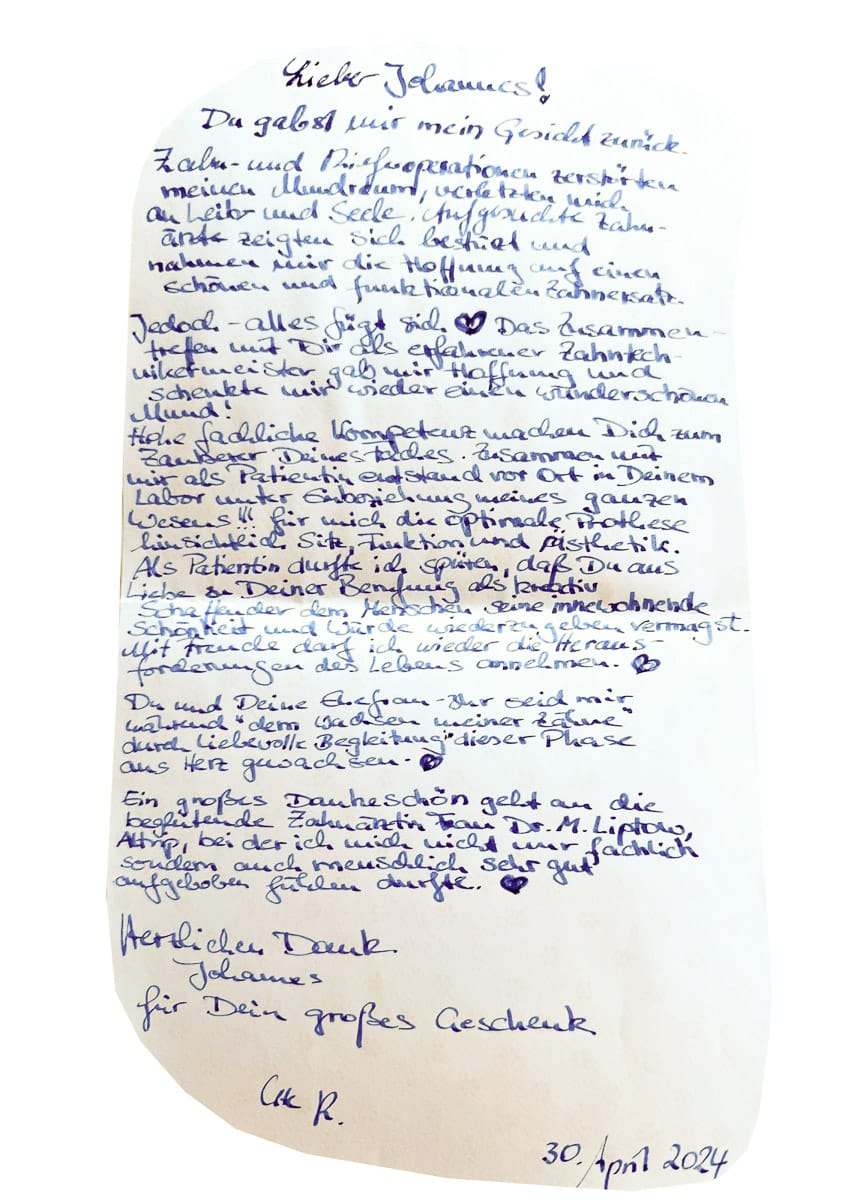 Lieber Johannes!
Du gabst mir mein Gesicht zurück.
Zahn- und Kieferoperationen zerstörten
meinen Mundraum, verletzten mich
an Leib und Seele. Aufgesuchte Zahn-
ärzte zeigten sich bestürzt und
nahmen mir die Hoffnung auf einen
schönen und funktionalen Zahnersatz.
Jedoch - alles fügt sich ♥ Das Zusammen-
treffen mit Dir als erfahrener Zahntech-
nikermeister gab mir Hoffnung und
schenkte mir wieder einen wunderschönen
Mund!
Hohe fachliche Kompetenz machen Dich zum
Zauberer Deines Faches. Zusammen mit
mir als Patientin entstand vor Ort in Deinem
Labor unter Einbeziehung meines ganzen
Wesens!!! für mich die optimale Prothese
hinsichtlich Sitz, Funktion und Ästhetik.
Als Patientin durfte ich spüren, daß Du aus
Liebe zu Deiner Berufung als kreativ
Schaffender dem Menschen seine innewohnende
Schönheit und Würde wiederzugeben vermagst.
Mit Freude darf ich wieder die Heraus-
forderungen des Lebens annehmen. ♥
Du und Deine Ehefrau - Ihr seid mir
während "dem Wachsen meiner Zähne"
durch liebevolle Begleitung dieser Phase
ans Herz gewachsen. ♥
Ein großes Dankeschön geht an die
begleitende Zahnärztin Frau Dr. M. Liptow,
Altrip, bei der ich mich nicht nur fachlich
sondern auch menschlich sehr gut
aufgehoben fühlen durfte. ♥
Herzlichen Dank
Johannes
für Dein großes Geschenk
R.
30. April 2024